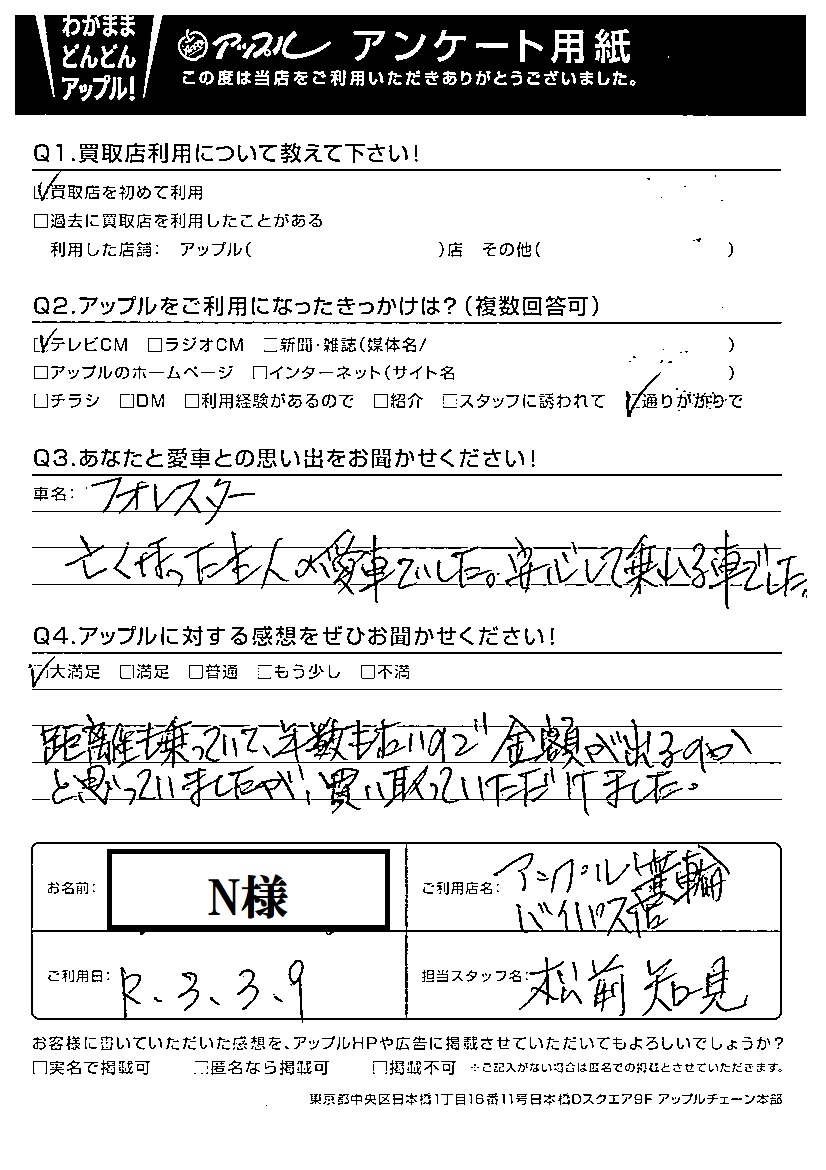 わがまま
どんどん
アップル!
アップル アンケート用紙
この度は当店をご利用いただきありがとうございました。
Q1.買取店利用について教えて下さい!
☑買取店を初めて利用
□過去に買取店を利用したことがある
利用した店舗： アップル( )店 その他( )
Q2.アップルをご利用になったきっかけは?(複数回答可)
☑テレビCM □ラジオCM □新聞・雑誌(媒体名/ )
□アップルのホームページ □インターネット(サイト名 )
□チラシ □DM □利用経験があるので □紹介 □スタッフに誘われて ☑通りがかりで
Q3.あなたと愛車との思い出をお聞かせください!
車名： フォレスター
亡くなった主人の愛車でした。安心して乗れる車でした。
Q4.アップルに対する感想をぜひお聞かせください!
☑大満足 □満足 □普通 □もう少し □不満
距離も乗っていて、年数も古いので金額が出るのか
と思っていましたが、買い取っていただけました。
お名前： N様
ご利用店名： アップル
バイパス店
ご利用日： R.3.3.9
担当スタッフ名： 松前 知見
お客様に書いていただいた感想を、アップルHPや広告に掲載させていただいてもよろしいでしょうか?
□実名で掲載可 □匿名なら掲載可 □掲載不可 ※ご記入がない場合は匿名での掲載とさせていただきます。
東京都中央区日本橋1丁目16番11号日本橋Dスクエア9F アップルチェーン本部